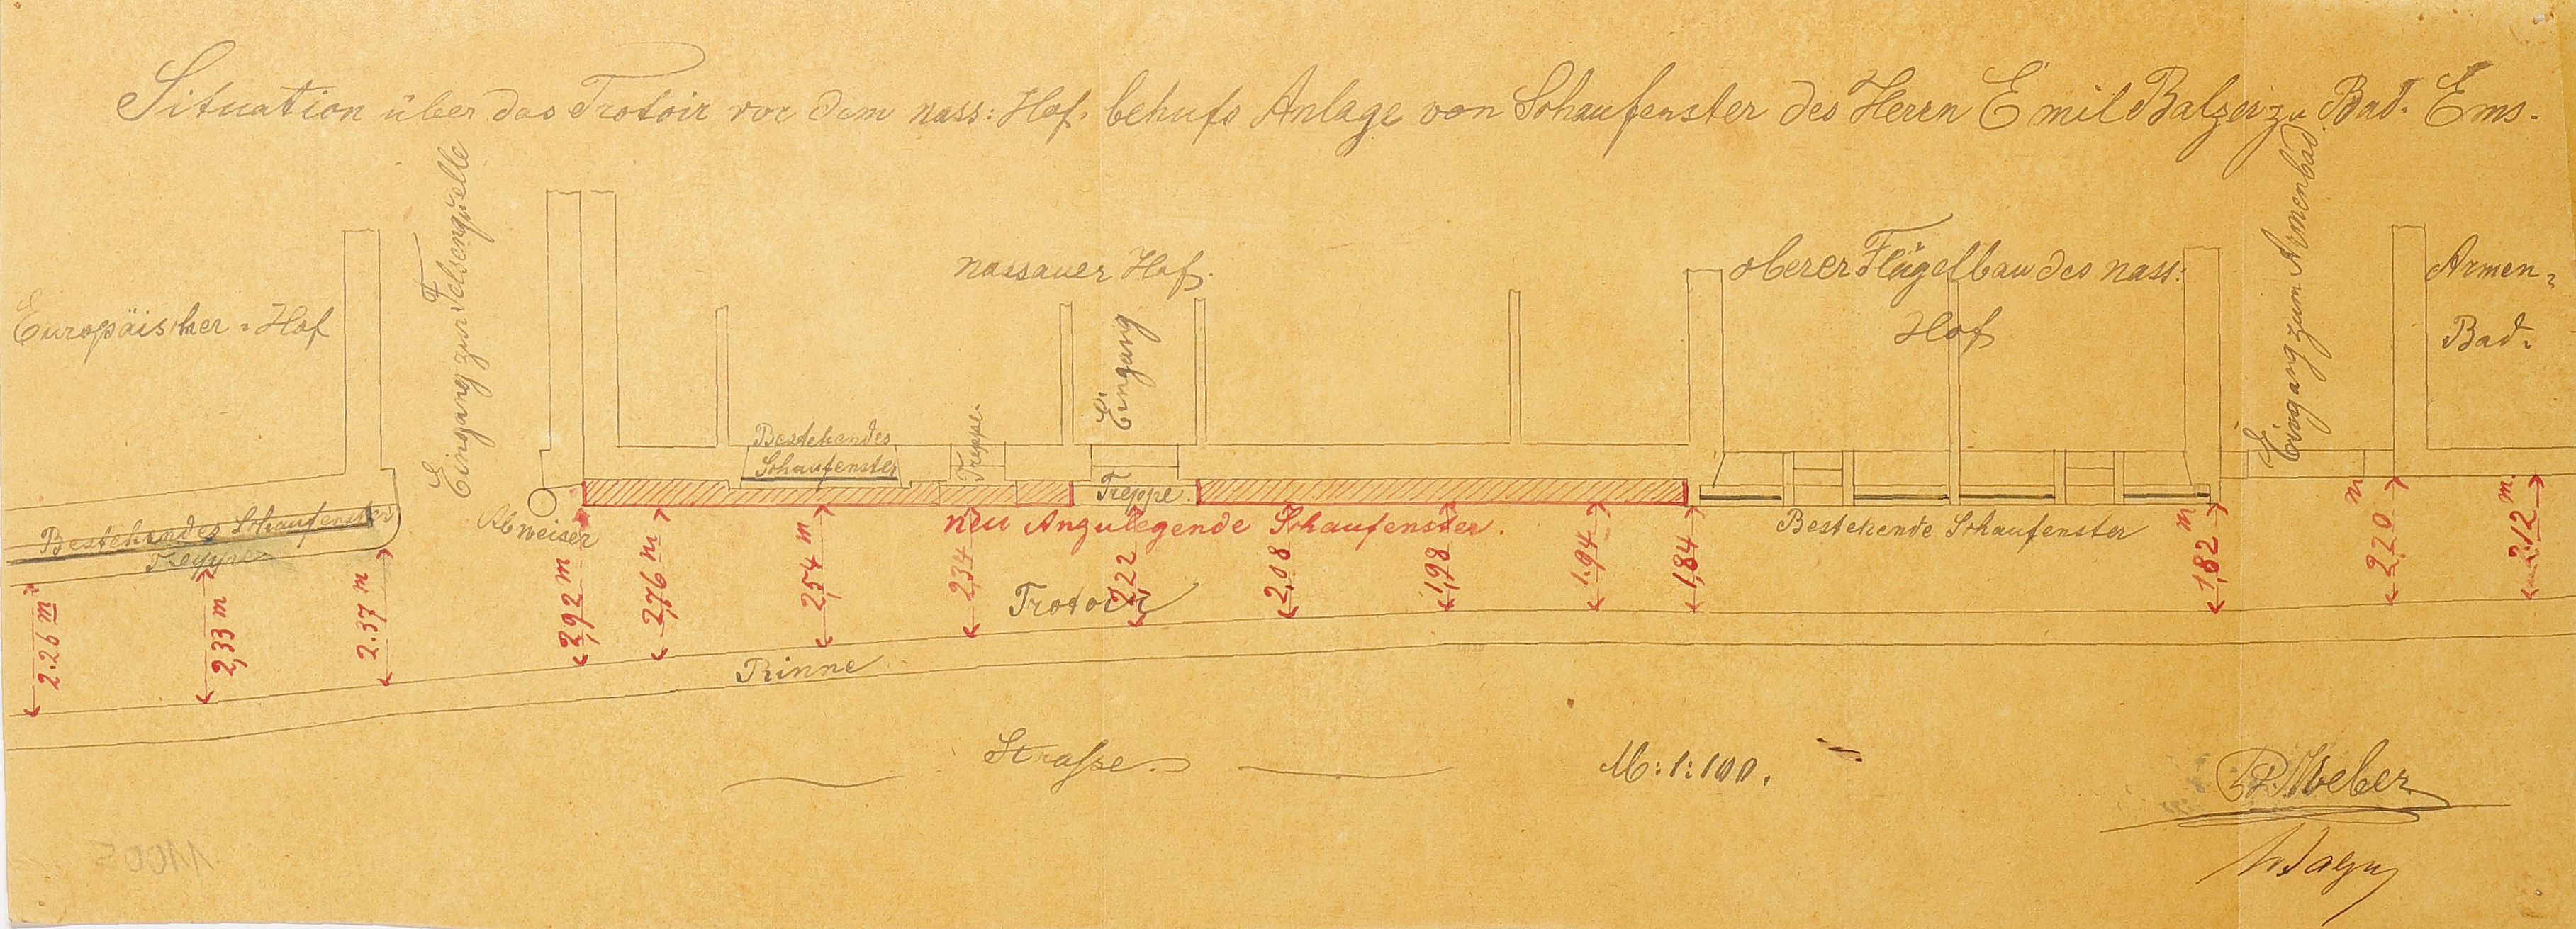 Situation über das Trotoir vor dem nass: Hof. behufs Anlage von Schaufenster des Herrn Emil Balzer zu Bad. Ems.
Europäischer = Hof
Eingang zur Felsenquelle
nassauer Hof.
Eingang
oberer Flügelbau des nass:
Hof
Eingang zum Armenbad
Armen =
Bad.
Bestehendes
Schaufenster
Treppe.
Treppe.
Bestehendes Schaufenster
Treppen
Abweiser
neu Anzulegende Schaufenster.
Bestehende Schaufenster
2.26 m
2,33 m
2.37 m
2,92 m
2,76 m
2,54 m
2,34
2,22
2.08
1,98
1.94
1,84
1,82 m
2,20 m
2.12 m.
Trotoir
Rinne
Strasse.
M: 1:100.
Weber
11005